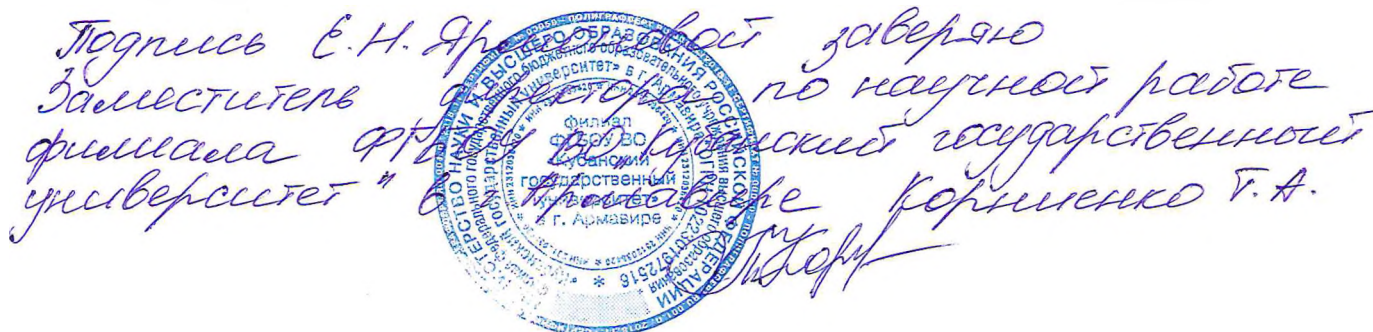 Подпись Е.Н. заверяю
Заместитель директора по научной работе
филиала ФГБОУ ВО "Кубанский государственный
университет" в г. Армавире Корниенко Т.А.
МИНИСТЕРСТВО НАУКИ И ВЫСШЕГО ОБРАЗОВАНИЯ РОССИЙСКОЙ ФЕДЕРАЦИИ
филиал
ФГБОУ ВО
«Кубанский
государственный
университет»
в г. Армавире